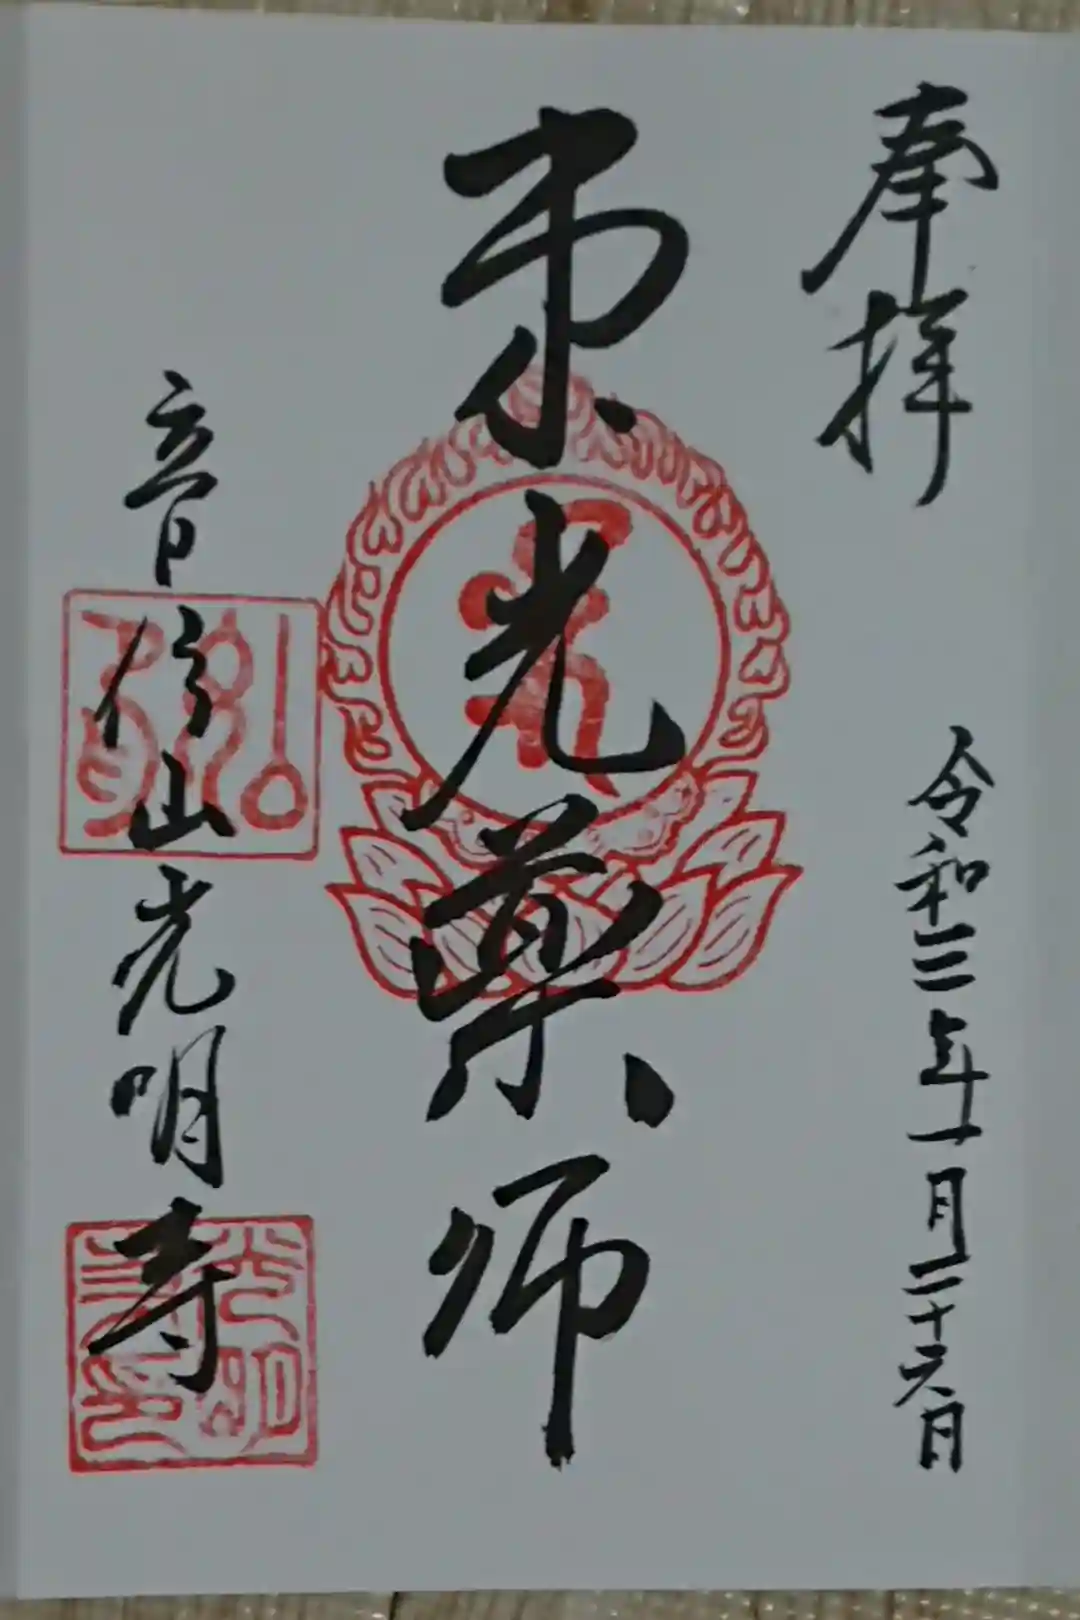 奉拝
令和三年一月二十六日
東光薬師
音信山光明寺
光明寺印